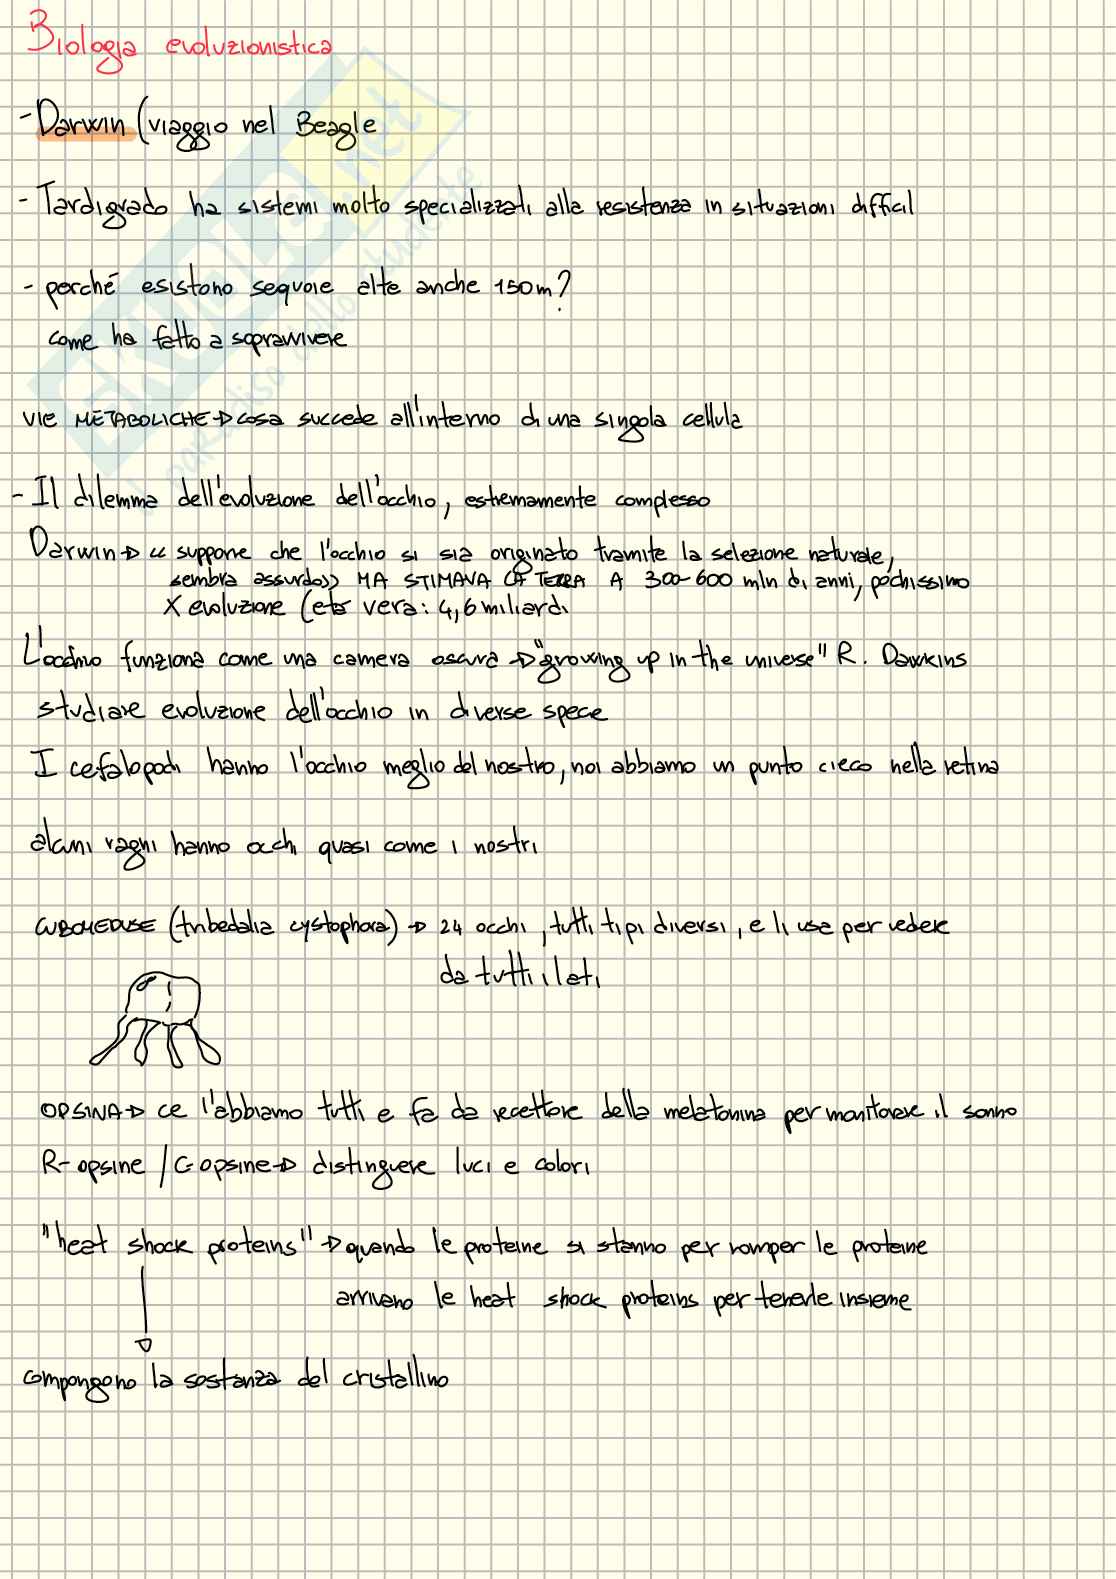 Biologia evoluzionistica
- Darwin (viaggio nel Beagle
- Tardigrado ha sistemi molto specializzati alla resistenza in situazioni difficil
- perché esistono sequoie alte anche 150m?
come ha fatto a sopravvivere
VIE METABOLICHE → cosa succede all'interno di una singola cellula
- Il dilemma dell'evoluzione dell'occhio, estremamente complesso
Darwin → « suppone che l'occhio si sia originato tramite la selezione naturale,
sembra assurdo» MA STIMAVA LA TERRA A 300-600 mln di anni, pochissimo
X evoluzione (età vera: 4,6 miliardi
L'occhio funziona come una camera oscura → "growing up in the universe" R. Dawkins
studiare evoluzione dell'occhio in diverse spece
I cefalopodi hanno l'occhio meglio del nostro, noi abbiamo un punto cieco nella retina
alcuni ragni hanno occhi quasi come i nostri
CUBOMEDUSE (tribedalia cystophora) → 24 occhi, tutti tipi diversi, e li usa per vedere
da tutti i lati
OPSINA → ce l'abbiamo tutti e fa da recettore della melatonina per mantenere il sonno
R-opsine / C-opsine → distinguere luci e colori
"heat shock proteins" → quando le proteine si stanno per romper le proteine
arrivano le heat shock proteins per tenerle insieme
compongono la sostanza del cristallino
SKUOLA.net
paradiso dello studente